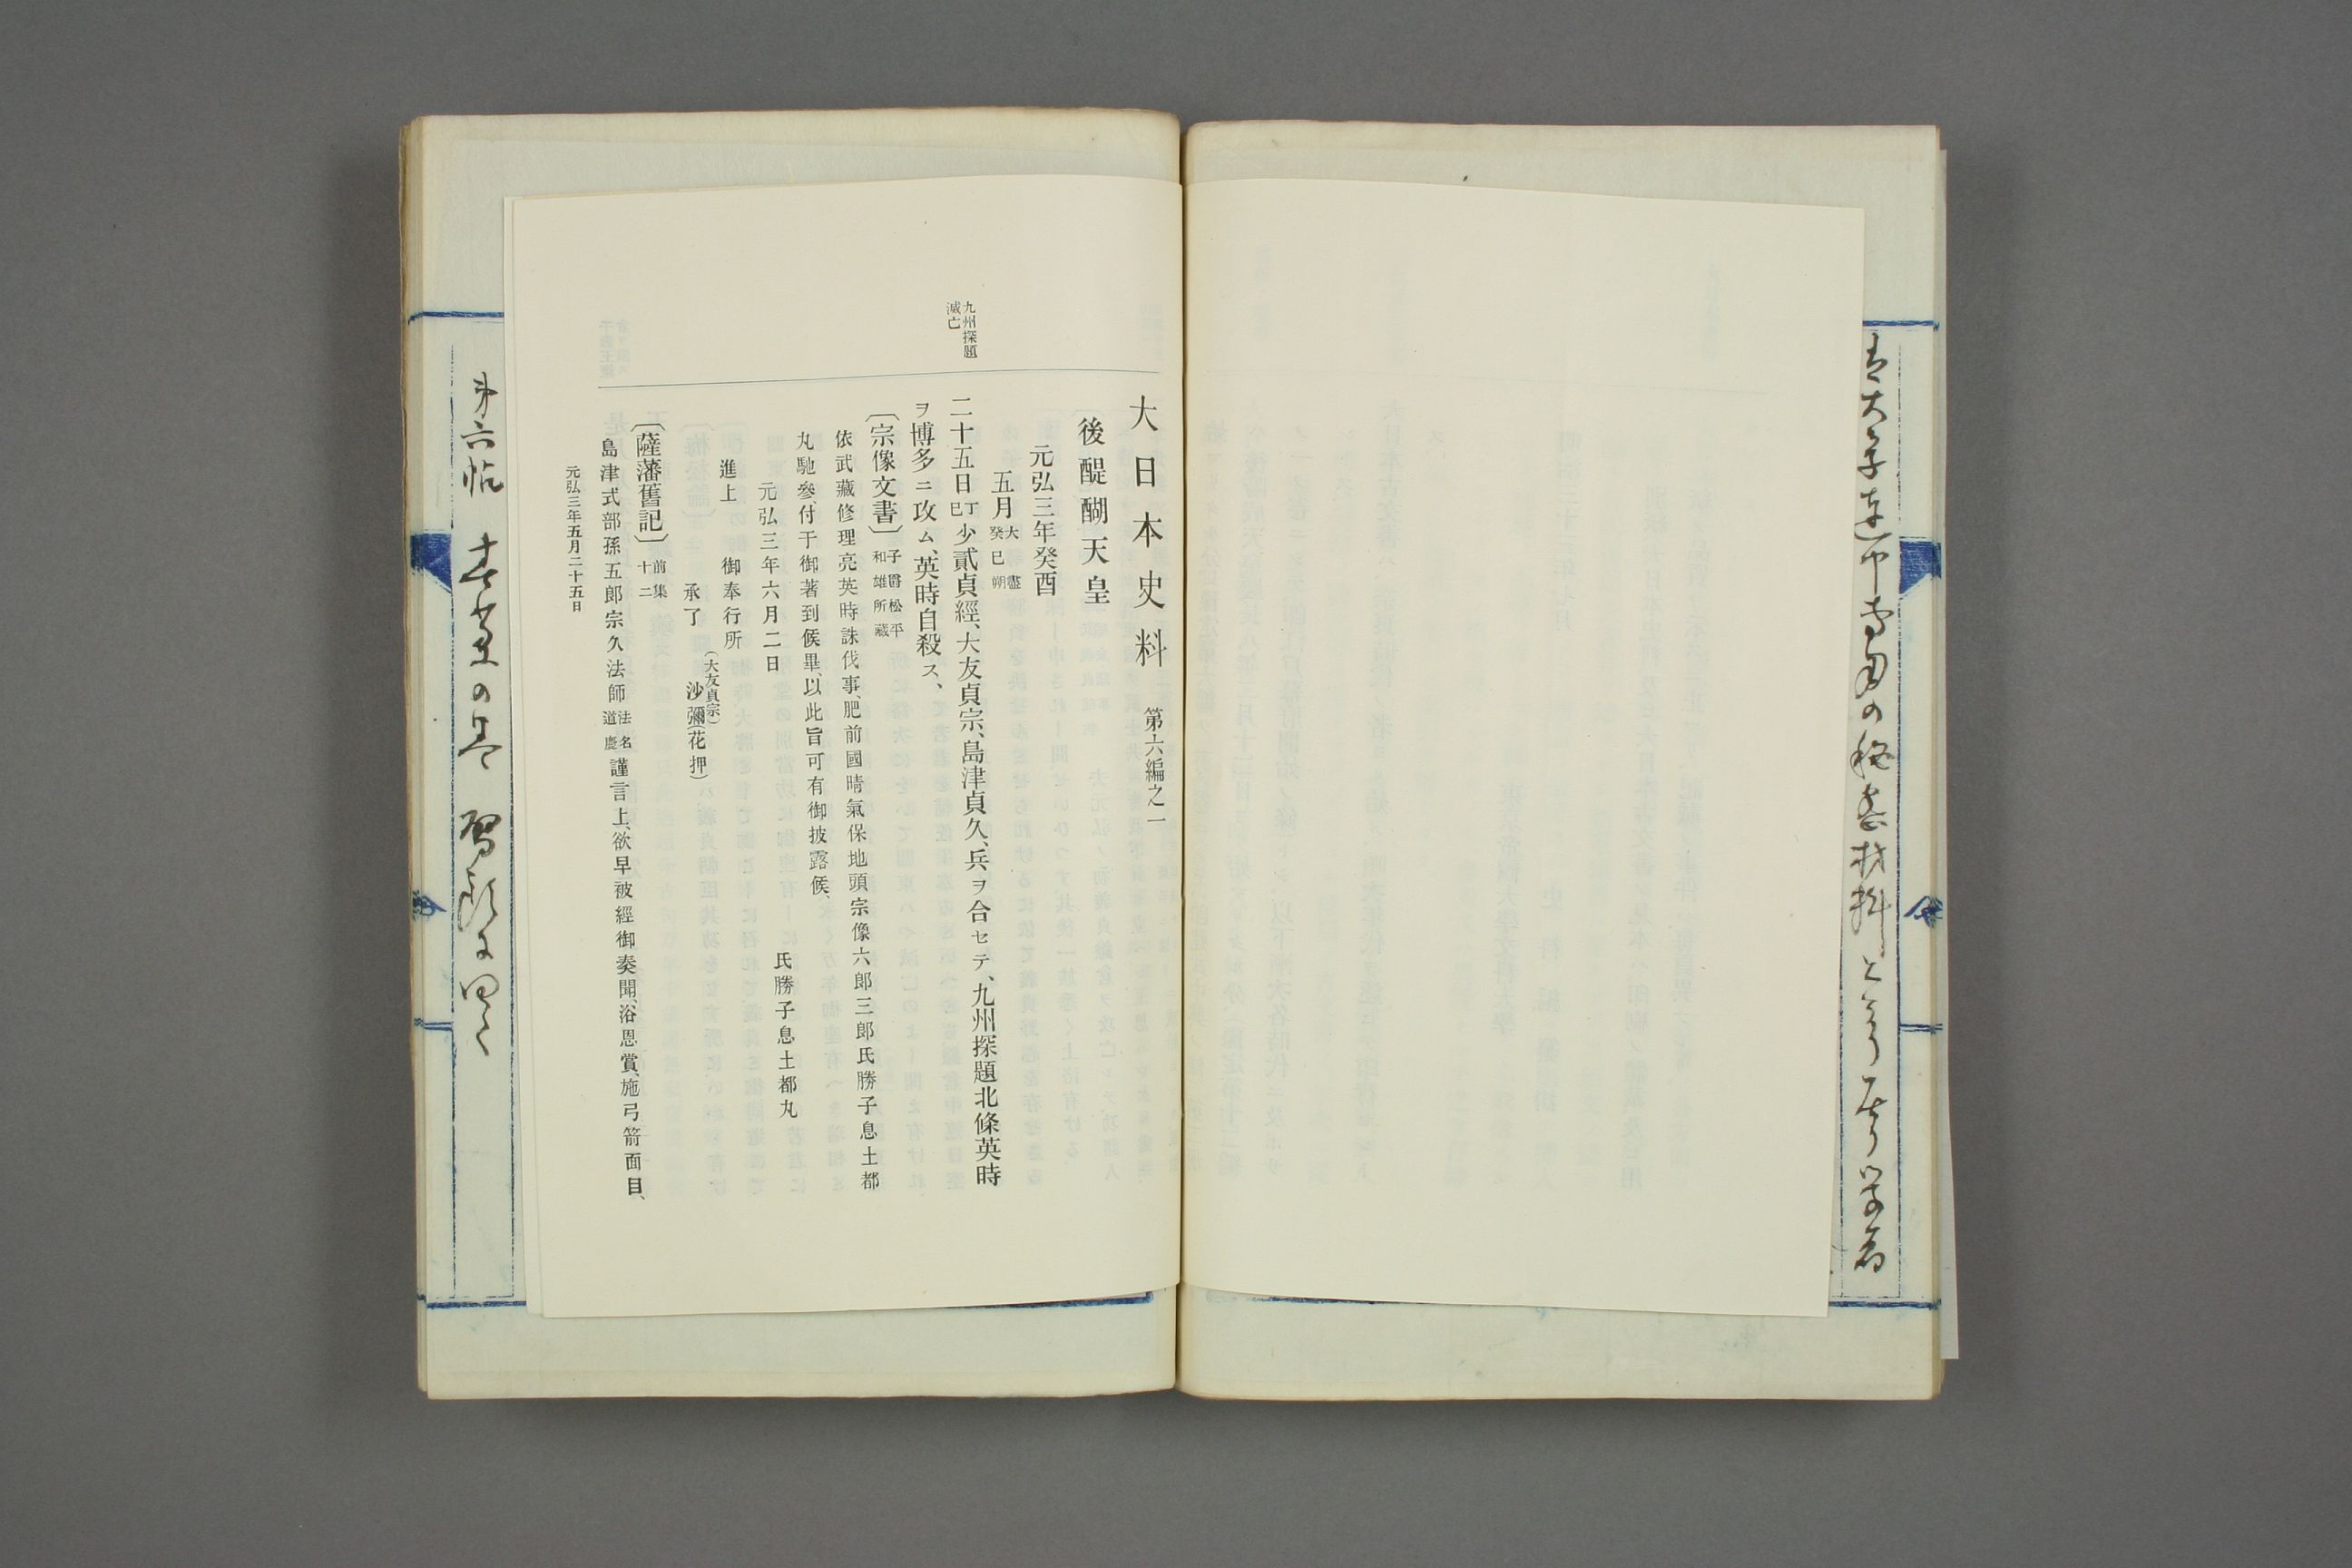 大日本史料 第六編之一
後醍醐天皇
元弘三年癸酉
五月大盡癸巳朔
九州探題滅亡
二十五日丁巳少貳貞經、大友貞宗、島津貞久、兵ヲ合セテ、九州探題北條英時
ヲ博多ニ攻ム、英時自殺ス、
〔宗像文書〕子爵松平和雄所藏
依武藏修理亮英時誅伐事、肥前國晴氣保地頭宗像六郎三郎氏勝子息土都
丸馳參、付于御著到候畢、以此旨可有御披露候、
元弘三年六月二日 氏勝子息土都丸
進上 御奉行所
承了 (大友貞宗) 沙彌(花押)
〔薩藩舊記〕前集十二
島津式部孫五郎宗久法師法名道慶謹言上、欲早被經御奏聞、浴恩賞、施弓箭面目、
元弘三年五月二十五日